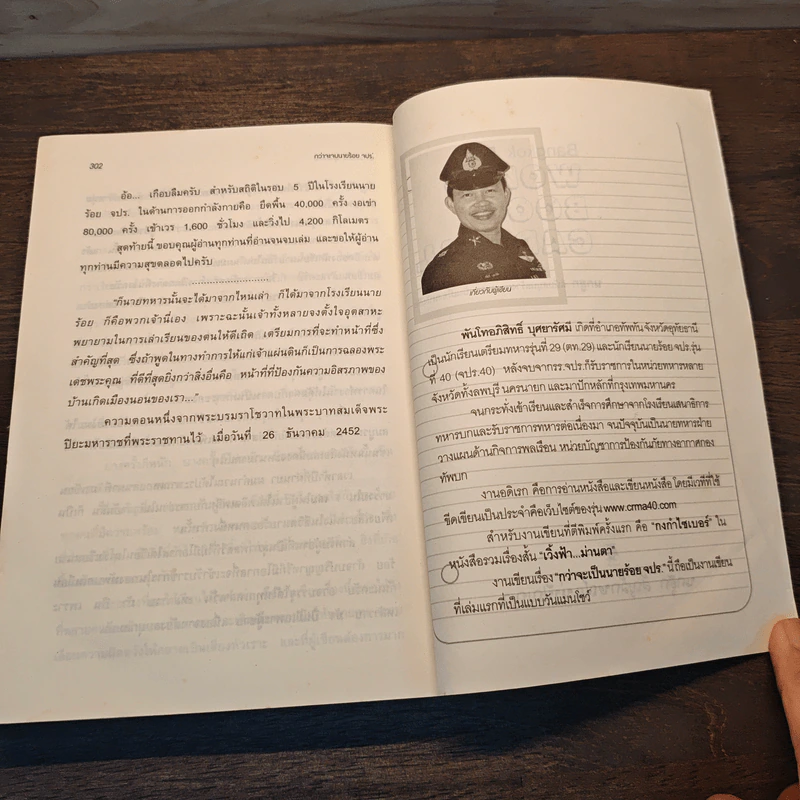 302
กว่าจะเป็นนายร้อย จปร.
อ้อ... เกือบลืมครับ สำหรับสถิติในรอบ 5 ปีในโรงเรียนนาย
ร้อย จปร. ในด้านการออกกำลังกายคือ ยึดพื้น 40,000 ครั้ง งอเข่า
80,000 ครั้ง เข้าเวร 1,600 ชั่วโมง และวิ่งไป 4,200 กิโลเมตร
สุดท้ายนี้ ขอบคุณผู้อ่านทุกท่านที่อ่านจนจบเล่ม และขอให้ผู้อ่าน
ทุกท่านมีความสุขตลอดไปครับ
..........................
"ก็นายทหารนั้นจะได้มาจากไหนเล่า ก็ได้มาจากโรงเรียนนาย
ร้อย ก็คือพวกเจ้านี่เอง เพราะฉะนั้นเจ้าทั้งหลายจงตั้งใจอุตสาหะ
พยายามในการเล่าเรียนของตนให้ดีเถิด เตรียมการที่จะทำหน้าที่ซึ่ง
สำคัญที่สุด ซึ่งถ้าพูดในทางทำการให้แก่เจ้าแผ่นดินก็เป็นการฉลองพระ
เดชพระคุณ ที่ดีที่สุดยิ่งกว่าสิ่งอื่นคือ หน้าที่ที่ป้องกันความอิสรภาพของ
บ้านเกิดเมืองนอนของเรา..."
ความตอนหนึ่งจากพระบรมราโชวาทในพระบาทสมเด็จพระ
ปิยะมหาราชที่พระราชทานไว้ เมื่อวันที่ 26 ธันวาคม 2452
เกี่ยวกับผู้เขียน
พันโทอภิสิทธิ์ บุศยารัศมี เกิดที่อำเภอทัพทัน จังหวัดอุทัยธานี
เป็นนักเรียนเตรียมทหารรุ่นที่ 29 (ตท.29) และนักเรียนนายร้อย จปร. รุ่น
ที่ 40 (จปร.40) หลังจบจากรร.จปร.ก็รับราชการในหน่วยทหารหลาย
จังหวัดทั้งลพบุรี นครนายก และมาปักหลักที่กรุงเทพมหานคร
จนกระทั่งเข้าเรียนและสำเร็จการศึกษาจากโรงเรียนเสนาธิการ
ทหารบกและรับราชการทหารต่อเนื่องมา จนปัจจุบันเป็นนายทหารฝ่าย
วางแผนด้านกิจการพลเรือน หน่วยบัญชาการป้องกันภัยทางอากาศกอง
ทัพบก
งานอดิเรก คือการอ่านหนังสือและเขียนหนังสือ โดยมีเวทีที่ใช้
ขีดเขียนเป็นประจำคือเว็บไซต์ของรุ่น www.crma40.com
สำหรับงานเขียนที่ตีพิมพ์ครั้งแรก คือ "กงกำไซเบอร์" ใน
หนังสือรวมเรื่องสั้น "เวิ้งฟ้า...ม่านตา"
งานเขียนเรื่อง "กว่าจะเป็นนายร้อย จปร." นี้ ถือเป็นงานเขียน
ที่เล่มแรกที่เป็นแบบวันแมนโชว์